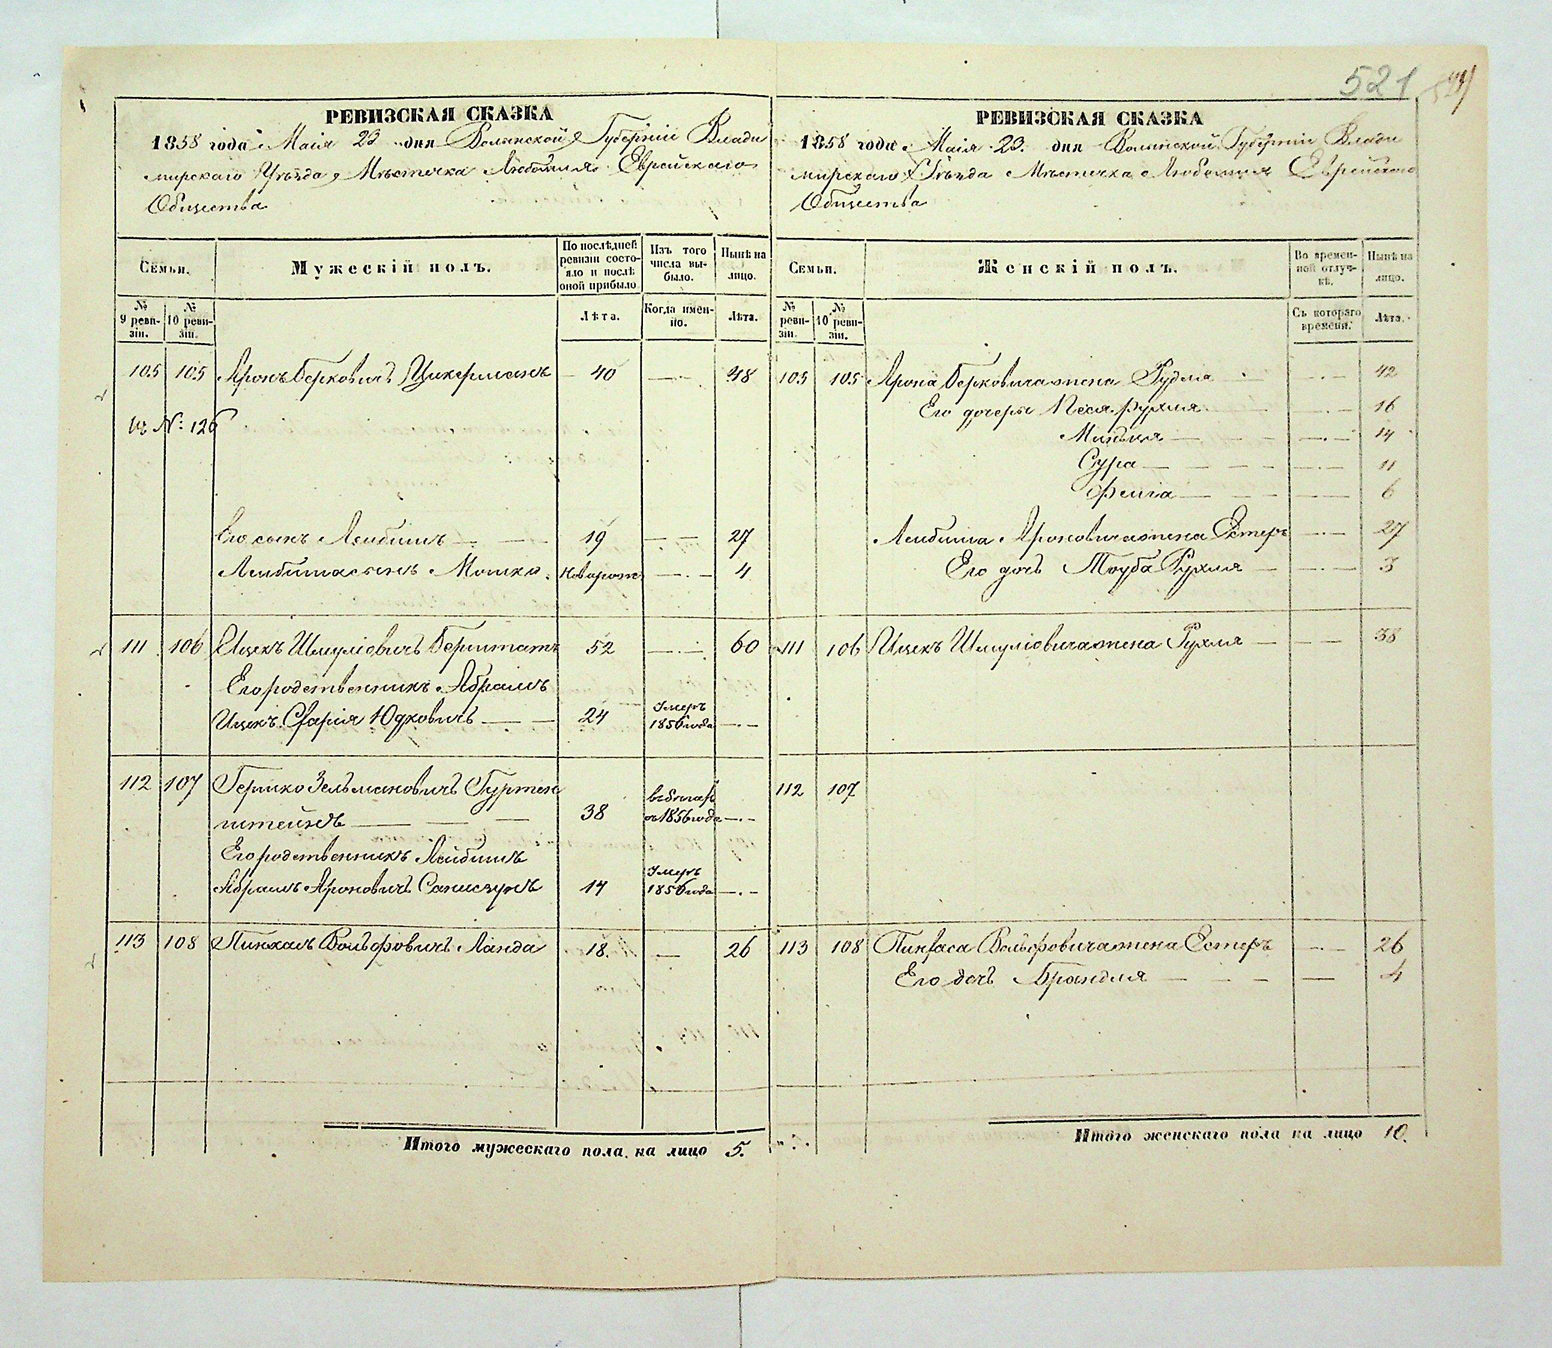 521
РЕВИЗСКАЯ СКАЗКА
1858 года Маія 23 дня Волынской Губерніи Влади
мирскаго Уѣзда, Мѣстечка Любомля Еврейскаго
Общества
Семьи.
Мужескій полъ.
По послѣдней ревизіи состояло и послѣ оной прибыло
Изъ того числа выбыло.
Нынѣ на лицо.
№ 9 ревизіи.
№ 10 ревизіи.
Лѣта.
Когда именно.
Лѣта.
105 105 Аронъ Берковичъ Цикерманъ 40 — 48
№ 126
Его сынъ Лейбишъ — 19 — 27
Лейбиша сынъ Мошко. новорож — 4
111 106 Ицекъ Шмуліовичъ 52 — 60
Его родственникъ Абрамъ
Ицекъ Сфарія Юдковичъ — 24 Умеръ 1856 года —
112 107 Гершко Зельмановичъ Гуртен
штейнъ — 38 1856 года —
Его родственникъ Лейбишъ
Абрамъ Ароновичъ 14 Умеръ 1856 года —
113 108 Пинхасъ Вольфовичъ Ланда 18. — 26
Итого мужескаго пола на лицо 5.
РЕВИЗСКАЯ СКАЗКА
1858 года Маія 23. дня Волынской Губерніи Влади
мирскаго Уѣзда Мѣстечка Любомля Еврейскаго
Общества
Семьи.
Женскій полъ.
Во временной отлучкѣ.
Нынѣ на лицо.
№ ревизіи.
№ 10 ревизіи.
Съ котораго времени.
Лѣта.
105 105 Арона Берковича жена Рудля — 42
Его дочери Песя Рухля — 16
Миндля — 14
Сура — 11
Фейга — 6
Лейбиша Ароновича жена Естеръ — 27
Его дочь Тоуба Рухля — 3
111 106 Ицекъ Шмуліовича жена Рухля — 38
112 107
113 108 Пинхаса Вольфовича жена Естеръ — 26
Его дочь Брандля — 4
Итого женскаго пола на лицо 10.